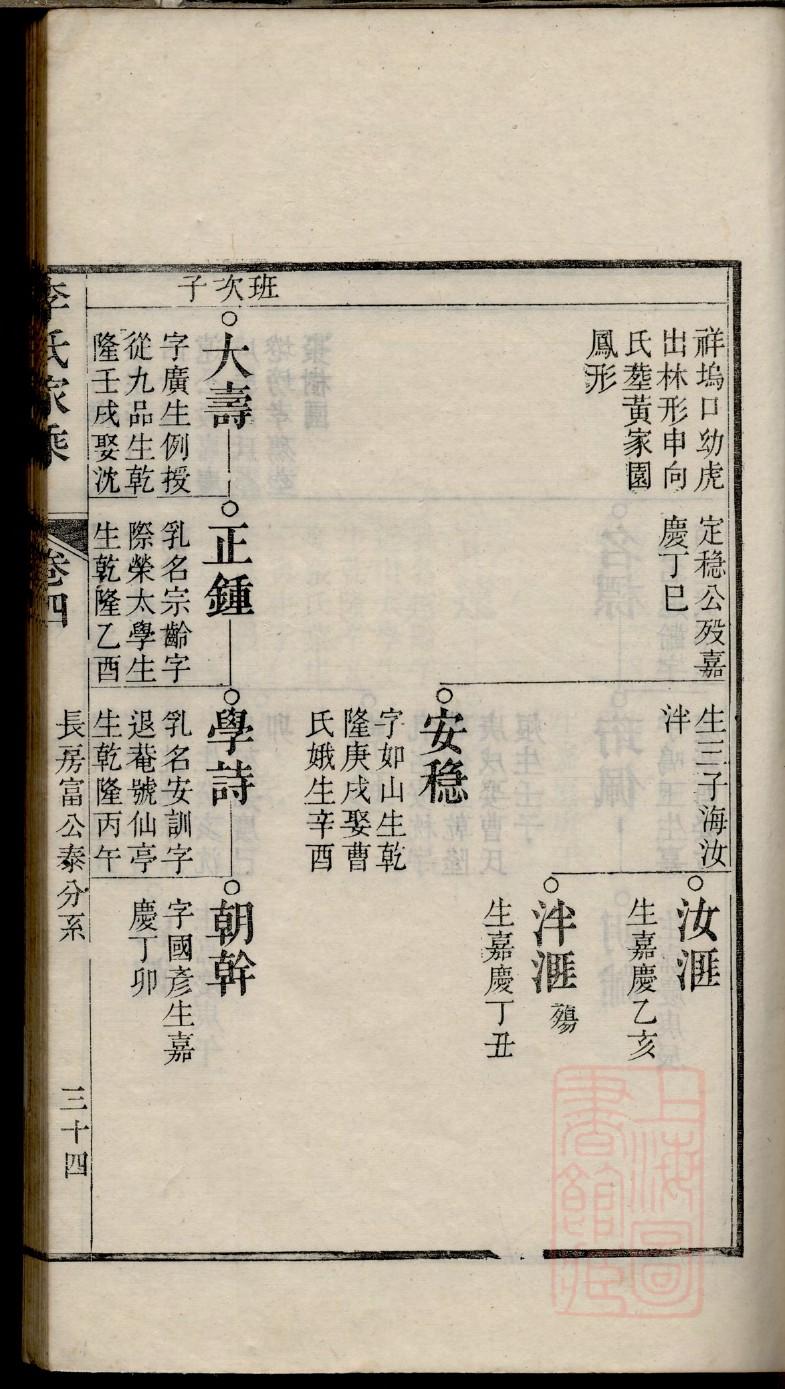 祥塢口幼虎
出林形申向
氏塟黄家園
鳳形
定穏公殁嘉
慶丁巳
生三子海汝
泮
汝滙
生嘉慶乙亥
泮滙 殤
生嘉慶丁丑
安穏
字如山生乾
隆庚戌娶曹
氏娥生辛酉
班次子
大壽
字廣生例授
從九品生乾
隆壬戌娶沈
正鍾
乳名宗齡字
際榮太學生
生乾隆乙酉
學詩
乳名安訓字
退菴號仙亭
生乾隆丙午
朝幹
字國彦生嘉
慶丁卯
李氏家乘
卷四
長房富公泰分系
三十四
上海圖
書館藏